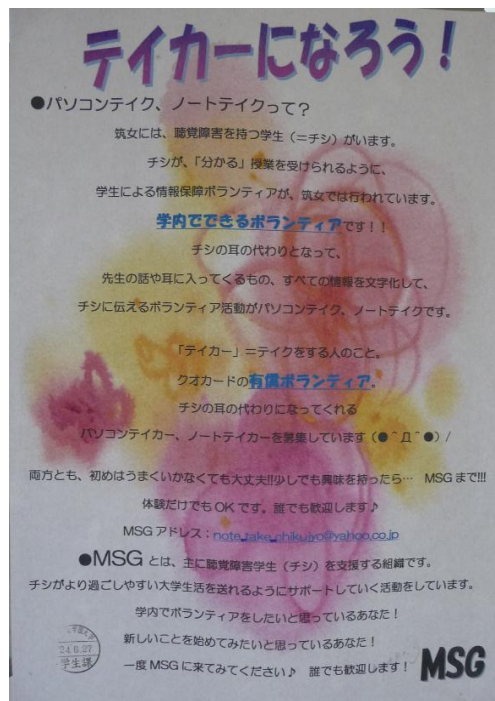 テイカーになろう！
●パソコンテイク、ノートテイクって？
筑女には、聴覚障害を持つ学生（＝チシ）がいます。
チシが、「分かる」授業を受けられるように、
学生による情報保障ボランティアが、筑女では行われています。
学内でできるボランティアです！！
チシの耳の代わりとなって、
先生の話や耳に入ってくるもの、すべての情報を文字化して、
チシに伝えるボランティア活動がパソコンテイク、ノートテイクです。
「テイカー」＝テイクをする人のこと。
クオカードの有償ボランティア。
チシの耳の代わりになってくれる
パソコンテイカー、ノートテイカーを募集しています（●＾Д＾●）/
両方とも、初めはうまくいかなくても大丈夫!!少しでも興味を持ったら… MSGまで!!!
体験だけでもOKです。誰でも歓迎します♪
MSGアドレス：note_take_chikujyo@yahoo.co.jp
●MSGとは、主に聴覚障害学生（チシ）を支援する組織です。
チシがより過ごしやすい大学生活を送れるようにサポートしていく活動をしています。
学内でボランティアをしたいと思っているあなた！
新しいことを始めてみたいと思っているあなた！
一度MSGに来てみてください♪ 誰でも歓迎します！
MSG
24.6.27
学生課